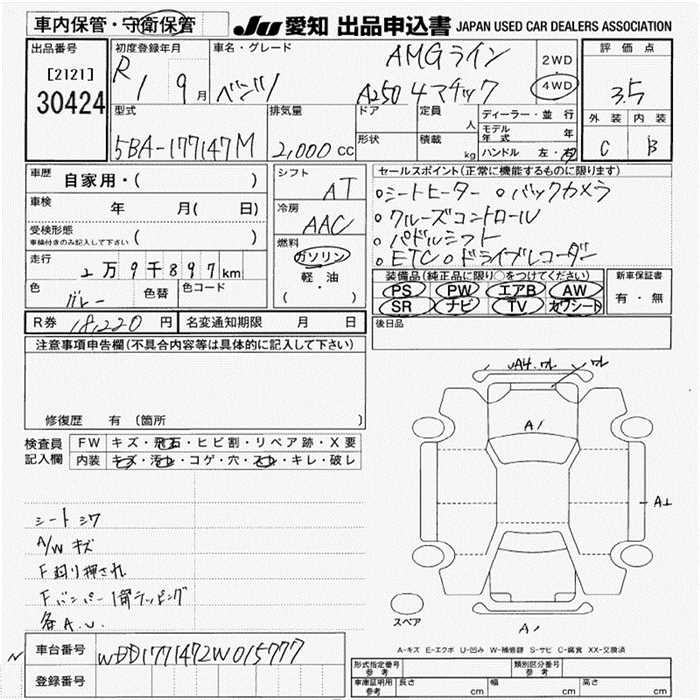 車内保管・守衛保管
JU 愛知 出品申込書 JAPAN USED CAR DEALERS ASSOCIATION
出品番号
[2121]
30424
初度登録年月
R 1 9月
車名・グレード
ベンツ A250 4マチック
AMGライン
2WD
4WD
評価点
3.5
外装 内装
C B
型式
5BA-177147M
排気量
2,000 cc
ドア
形状
定員 人
積載 kg
ディーラー・並行
モデル年式 年
ハンドル 左・右
車歴 自家用・( )
車検 年 月( 日)
受検形態
車検付きのみ記入して下さい ( )
走行 2万9千897km
色 グレー 色替 色コード
シフト AT
冷房 AAC
燃料
ガソリン
軽・油
( ・ )
セールスポイント(正常に機能するものに限ります)
○シートヒーター ○バックカメラ
○クルーズコントロール
○パドルシフト
○ETC ○ドライブレコーダー
装備品(純正品に限り○をつけてください)
PS PW エアB AW
SR ナビ TV カワシート
新車保証書
有・無
R券 18,220円
名変通知期限 月 日
後日品
注意事項申告欄(不具合内容等は具体的に記入して下さい)
修復歴 有 (箇所 )
検査員記入欄
FW キズ・飛石・ヒビ割・リペア跡・X要
内装 キズ・汚れ・コゲ・穴・スレ・キレ・破レ
シートシワ
A/Wキズ
F廻り押され
各A.U.
A1
A1
スペア
A-キズ E-エクボ U-凹み W-補修跡 S-サビ C-腐食 XX-交換済
車台番号 WDD1771472W015777
登録番号
形式指定番号 参考
類別区分番号 参考
車庫証明用 参考 長さ cm 幅 cm 高さ cm